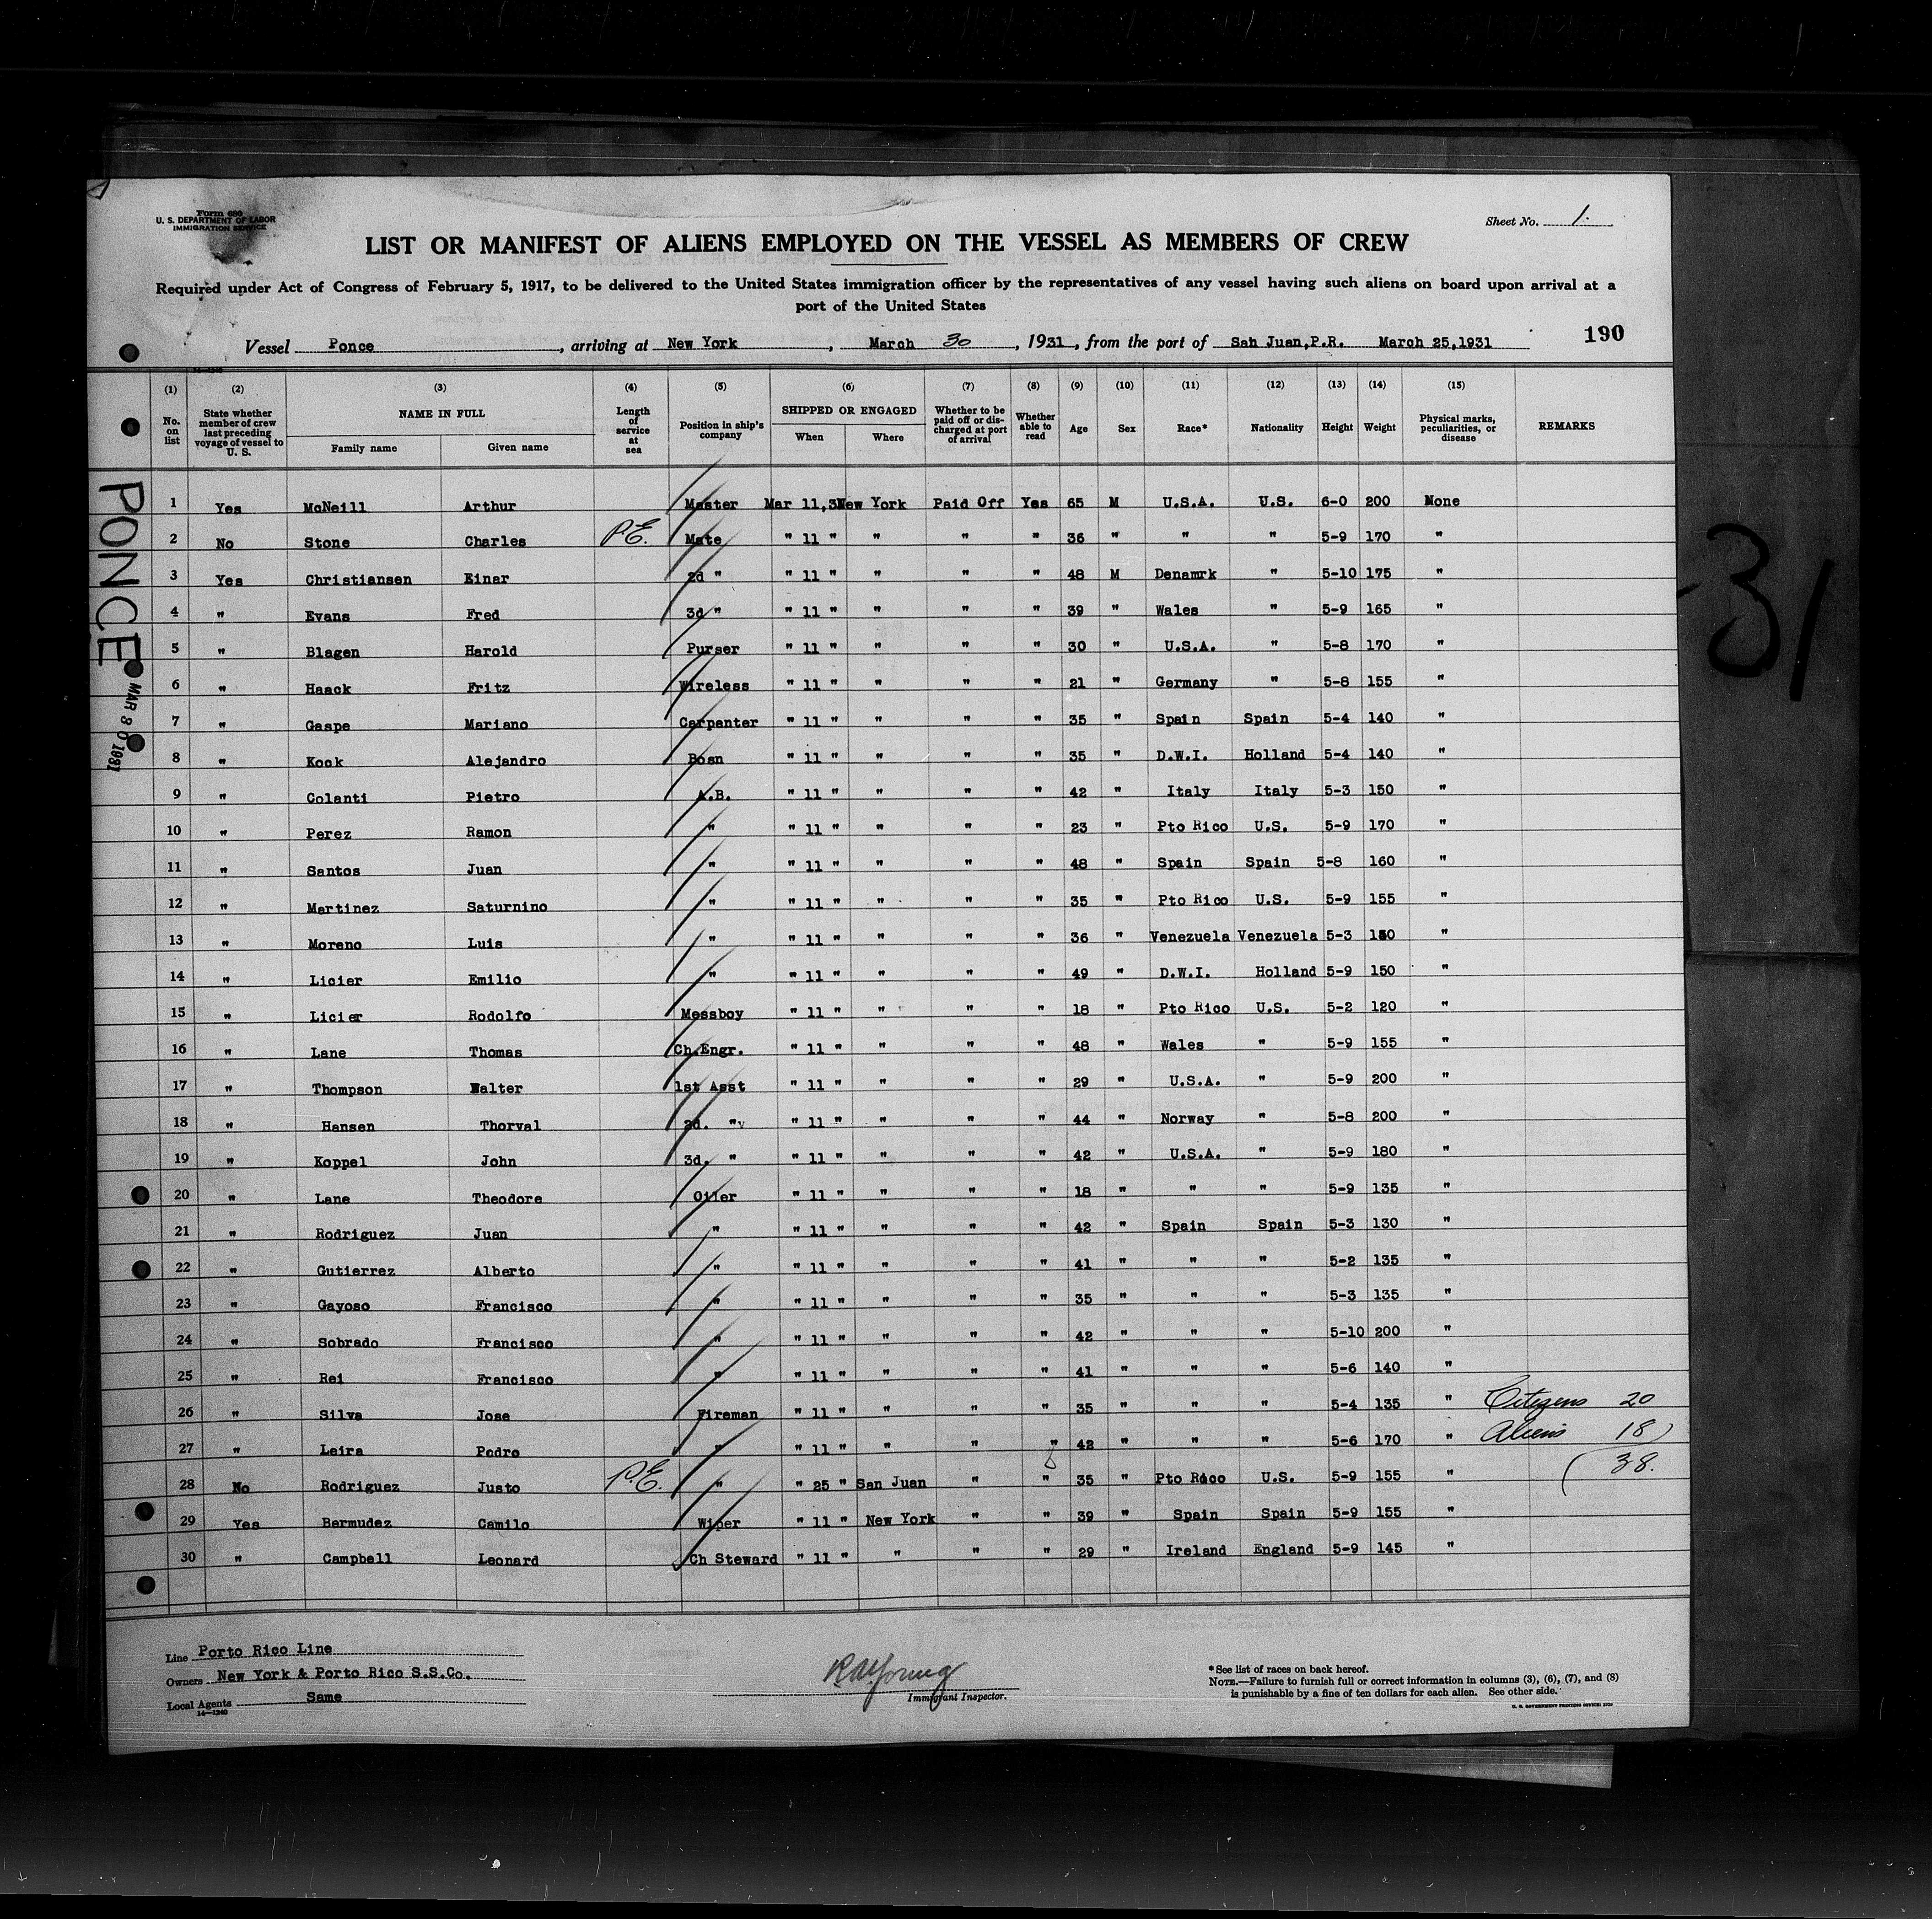 Form 680
U. S. DEPARTMENT OF LABOR
IMMIGRATION SERVICE
Sheet No. 1.
LIST OR MANIFEST OF ALIENS EMPLOYED ON THE VESSEL AS MEMBERS OF CREW
Required under Act of Congress of February 5, 1917, to be delivered to the United States immigration officer by the representatives of any vessel having such aliens on board upon arrival at a
port of the United States
Vessel Ponce, arriving at New York, March 30, 1931, from the port of San Juan,P.R. March 25,1931 190
(1) (2) (3) (4) (5) (6) (7) (8) (9) (10) (11) (12) (13) (14) (15)
No. on list State whether member of crew last preceding voyage of vessel to U. S. NAME IN FULL Family name Given name Length of service at sea Position in ship's company SHIPPED OR ENGAGED When Where Whether to be paid off or discharged at port of arrival Whether able to read Age Sex Race* Nationality Height Weight Physical marks, peculiarities, or disease REMARKS
1 Yes McNeill Arthur Master Mar 11,3 New York Paid Off Yes 65 M U.S.A. U.S. 6-0 200 None
2 No Stone Charles P.E. Mate " 11 " " " " 36 " " " 5-9 170 "
3 Yes Christiansen Einar 2d " " 11 " " " " 48 M Denamrk " 5-10 175 "
4 " Evans Fred 3d " " 11 " " " " 39 " Wales " 5-9 165 "
5 " Blagen Harold Purser " 11 " " " " 30 " U.S.A. " 5-8 170 "
6 " Haack Fritz Wireless " 11 " " " " 21 " Germany " 5-8 155 "
7 " Gaspe Mariano Carpenter " 11 " " " " 35 " Spain Spain 5-4 140 "
8 " Kock Alejandro Bosn " 11 " " " " 35 " D.W.I. Holland 5-4 140 "
9 " Colanti Pietro A.B. " 11 " " " " 42 " Italy Italy 5-3 150 "
10 " Perez Ramon " " 11 " " " " 23 " Pto Rico U.S. 5-9 170 "
11 " Santos Juan " " 11 " " " " 48 " Spain Spain 5-8 160 "
12 " Martinez Saturnino " " 11 " " " " 35 " Pto Rico U.S. 5-9 155 "
13 " Moreno Luis " " 11 " " " " 36 " Venezuela Venezuela 5-3 "
14 " Licier Emilio " " 11 " " " " 49 " D.W.I. Holland 5-9 150 "
15 " Licier Rodolfo Messboy " 11 " " " " 18 " Pto Rico U.S. 5-2 120 "
16 " Lane Thomas Ch.Engr. " 11 " " " " 48 " Wales " 5-9 155 "
17 " Thompson Walter 1st Asst " 11 " " " " 29 " U.S.A. " 5-9 200 "
18 " Hansen Thorval 2d. " " 11 " " " " 44 " Norway " 5-8 200 "
19 " Koppel John 3d. " " 11 " " " " 42 " U.S.A. " 5-9 180 "
20 " Lane Theodore Oiler " 11 " " " " 18 " " " 5-9 135 "
21 " Rodriguez Juan " " 11 " " " " 42 " Spain Spain 5-3 130 "
22 " Gutierrez Alberto " " 11 " " " " 41 " " " 5-2 135 "
23 " Gayoso Francisco " " 11 " " " " 35 " " " 5-3 135 "
24 " Sobrado Francisco " " 11 " " " " 42 " " " 5-10 200 "
25 " Rei Francisco " " 11 " " " " 41 " " " 5-6 140 "
26 " Silva Jose Fireman " 11 " " " " 35 " " " 5-4 135 " Citizens 20
27 " Leira Pedro " " 11 " " " " 42 " " " 5-6 170 " Aliens 18
28 No Rodriguez Justo P.E. " " 25 " San Juan " " 35 " Pto Rico U.S. 5-9 155 " 38.
29 Yes Bermudez Camilo Wiper " 11 " New York " " 39 " Spain Spain 5-9 155 "
30 " Campbell Leonard Ch Steward " 11 " " " " 29 " Ireland England 5-9 145 "
PONCE
MAR 30 1931
31
Line Porto Rico Line
Owners New York & Porto Rico S.S.Co.
Local Agents Same
14—1240
Immigrant Inspector.
*See list of races on back hereof.
NOTE.—Failure to furnish full or correct information in columns (3), (6), (7), and (8)
is punishable by a fine of ten dollars for each alien. See other side.